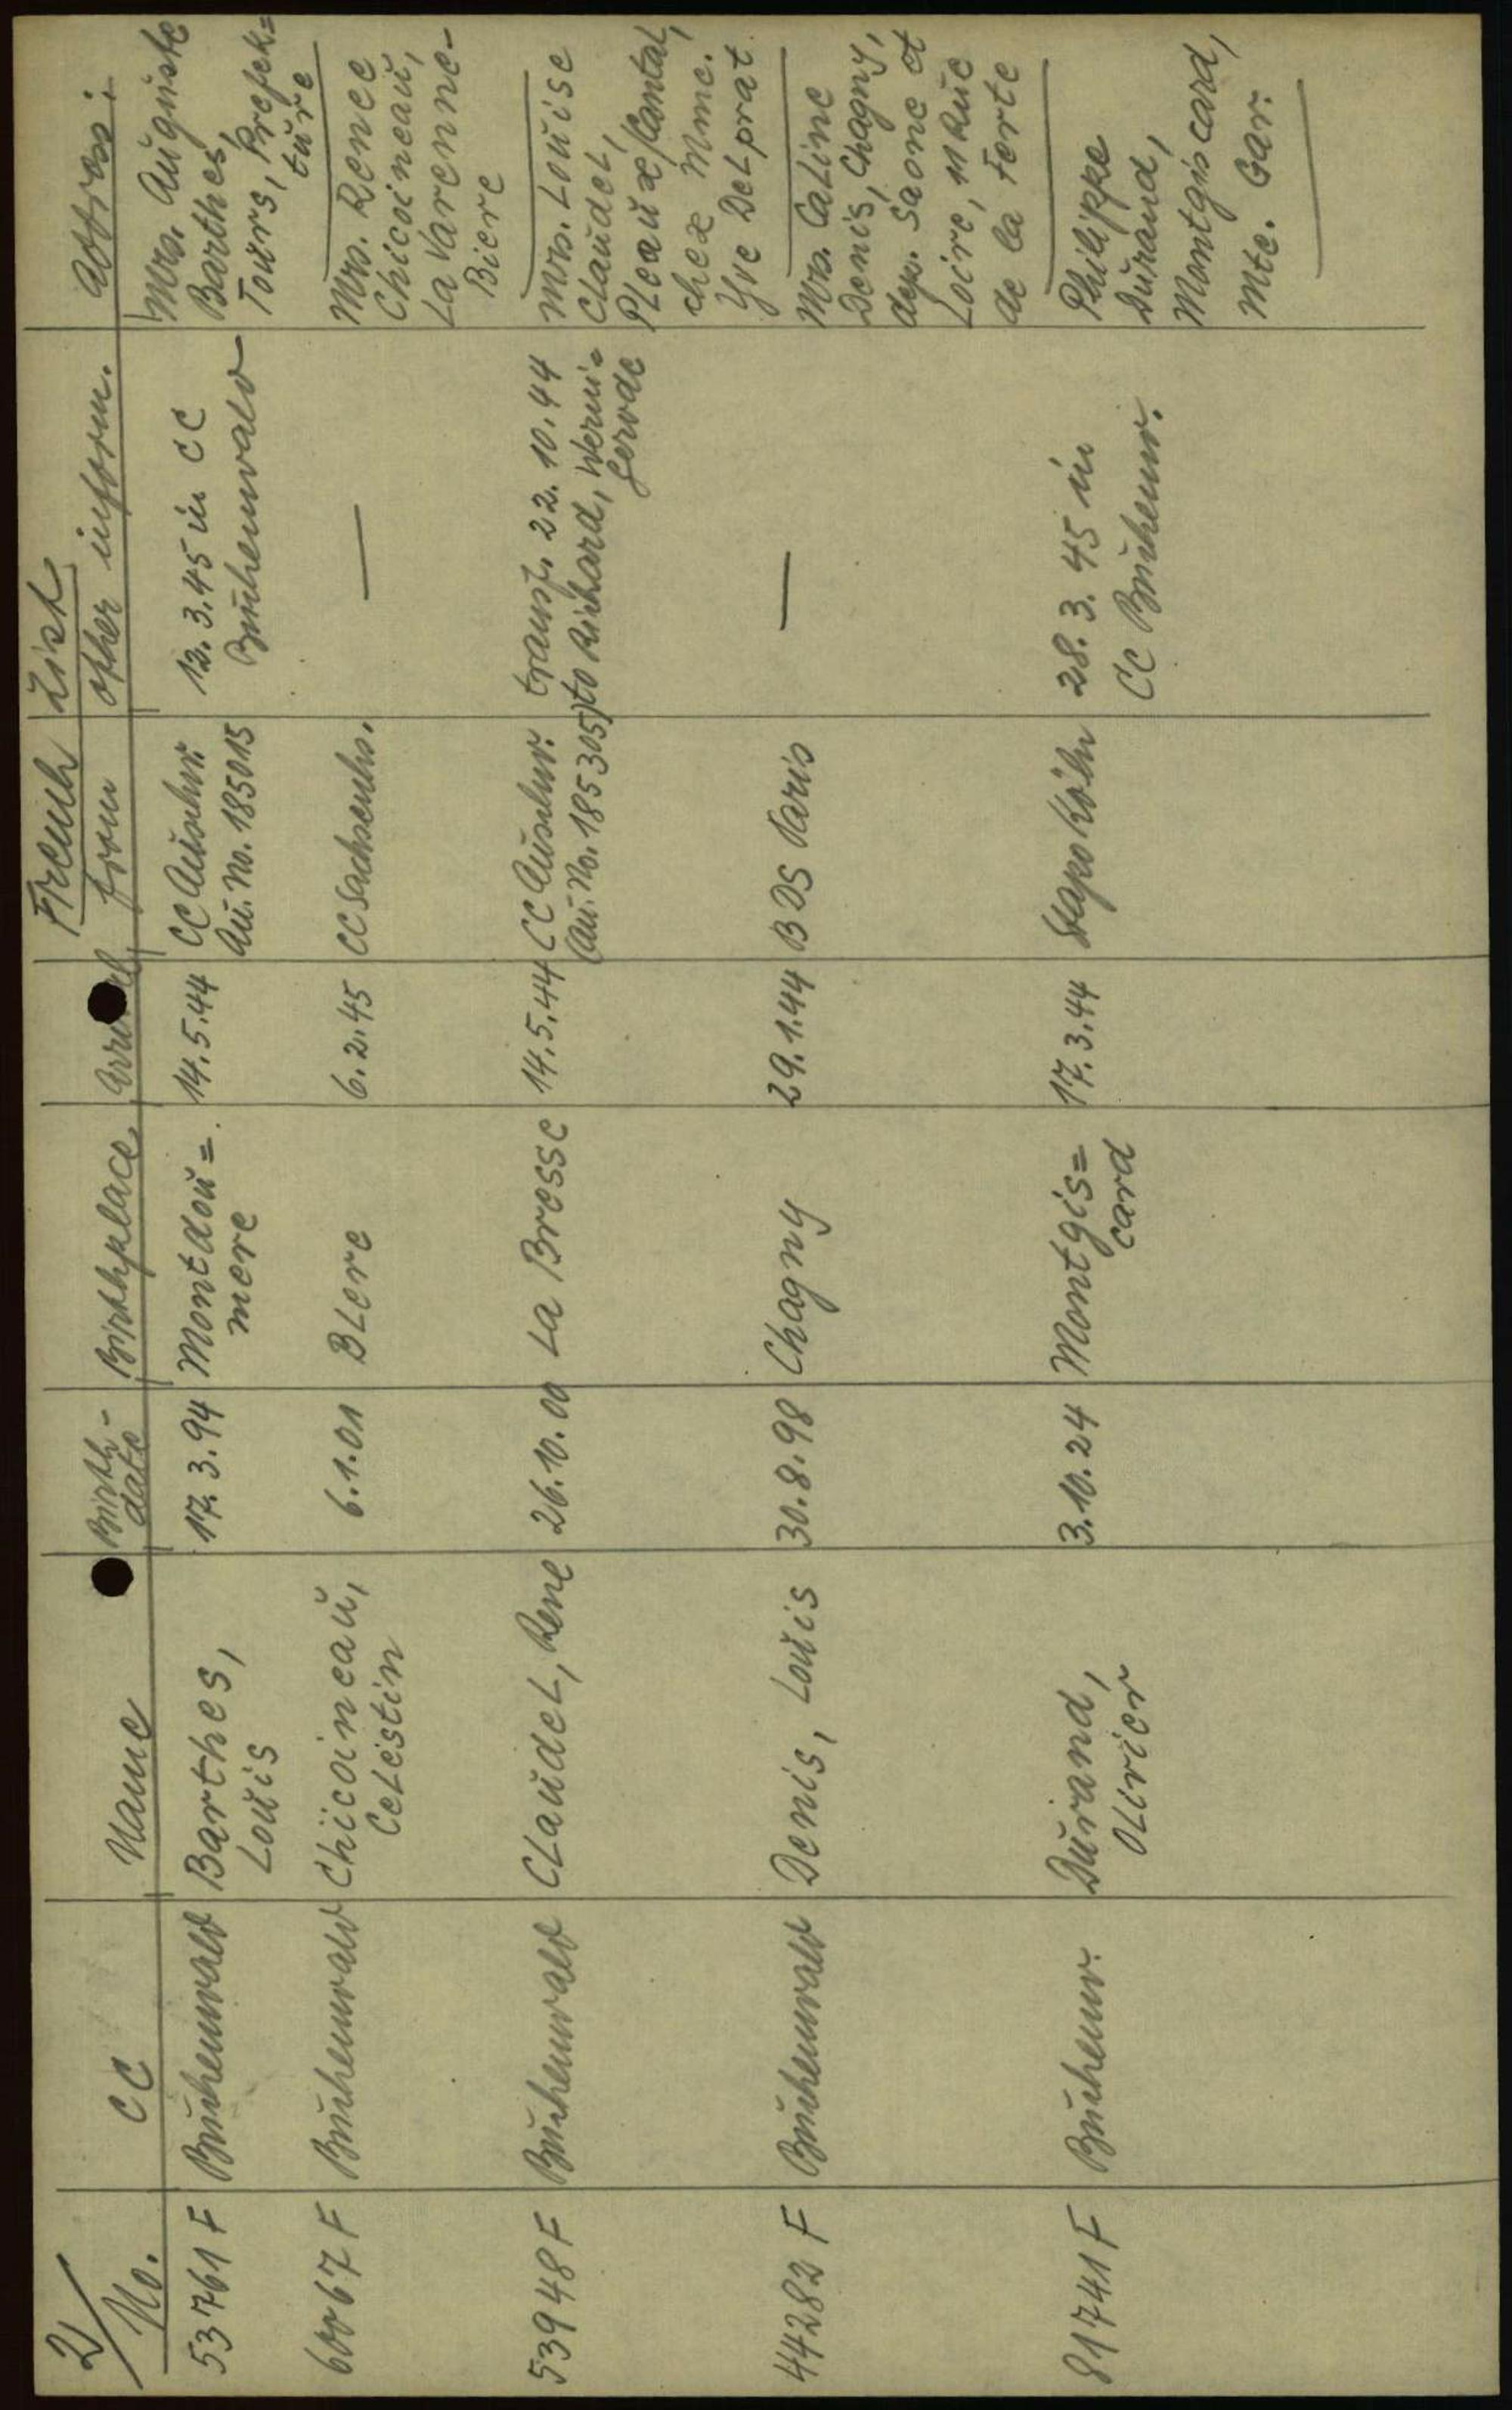 2/
French List
No. CC Name Birth-date Birthplace Arrival from other inform. Address:
53761 F Buchenwald Barthes, 17.3.94 Montdou= 14.5.44 CC Auschw. 12.3.45 in CC Mrs. Auguste
Louis mere Au. No. 185015 Buchenwald Barthes,
Tours, Prefek=
ture
60067 F Buchenwald Chicoineau, 6.1.01 Blere 6.2.45 CC Sachsenhs. — Mrs. Renee
Celestin Chicoineau,
La Varenne-
Biere
53948 F Buchenwald Claudel, Rene 26.10.00 La Bresse 14.5.44 CC Auschw. transf. 22.10.44 Mrs. Louise
(Au. No. 185305) to Richard, Werni= Claudel,
gerode Pleaux/Cantal,
chez Mme.
Yve Delprat
44282 F Buchenwald Denis, Louis 30.8.98 Chagny 29.1.44 BDS Paris — Mrs. Caline
Denis, Chagny,
dep. Saone et
Loire, 11 Rue
de la Ferte
81741 F Buchenw. Durand, 3.10.24 Montgis= 17.3.44 Stapo Köln 28.3.45 in Philippe
Olivier card CC Buchenw. Durand,
Montgiscard,
Mte. Gar.